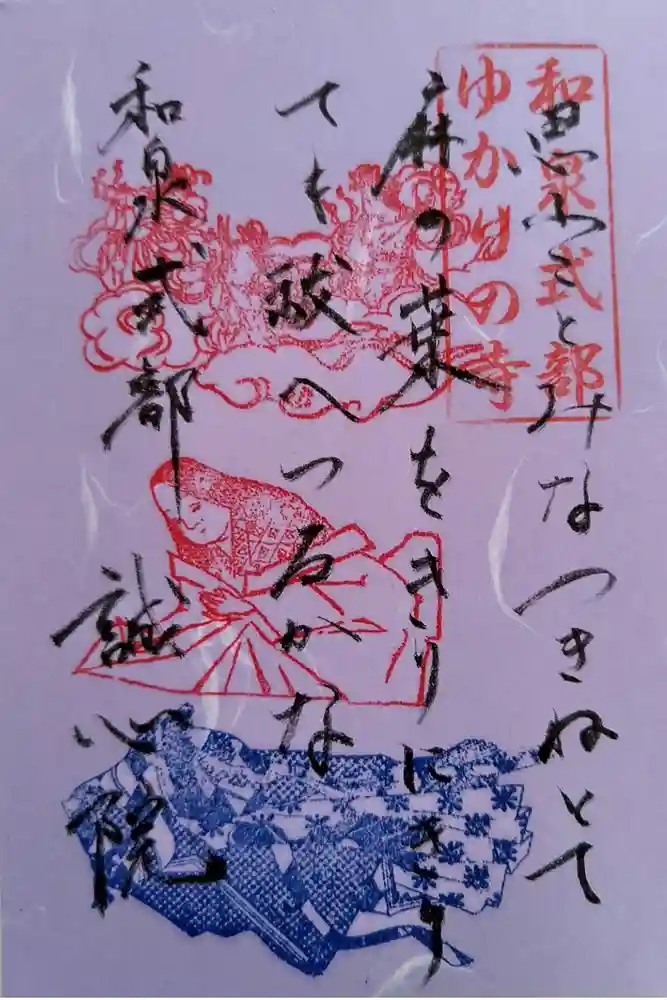 和泉式部
ゆかりの寺
思ふことみなつきねとて
麻の葉をきりにきり
ても祓へつるかな
和泉式部 誠心院